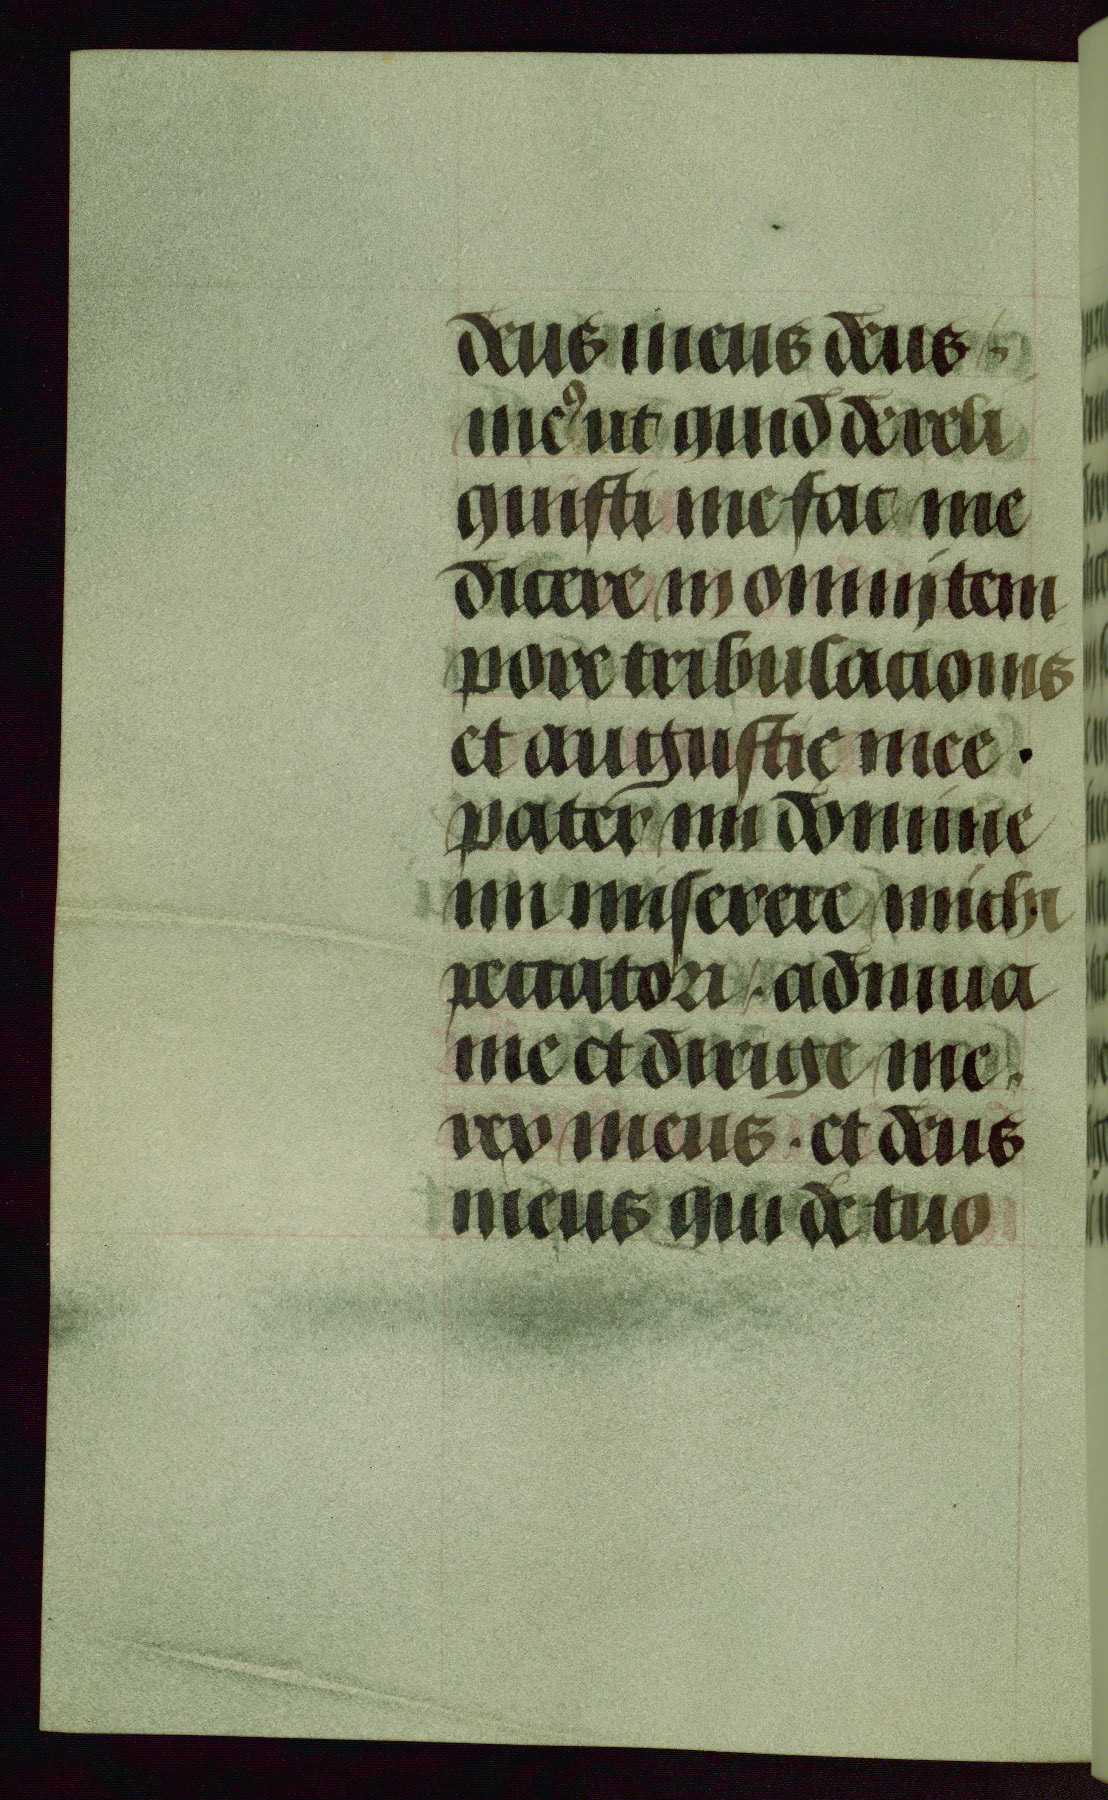 deus meus deus
me⁹ ut quid dereli
quisti me fac me
dicere in omni tem
pore tribulacionis
et angustie mee .
pater mi domine
mi miserere michi
peccatori . adiuua
me et dirige me .
rex meus . et deus
meus qui de tuo